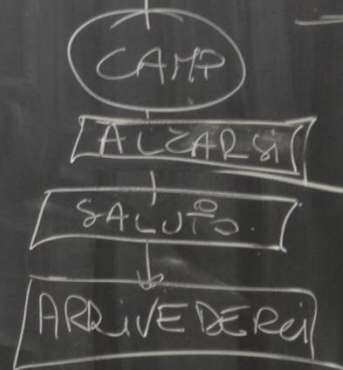 CAMP
ALZARSI
SALUTO.
ARRIVEDERCI